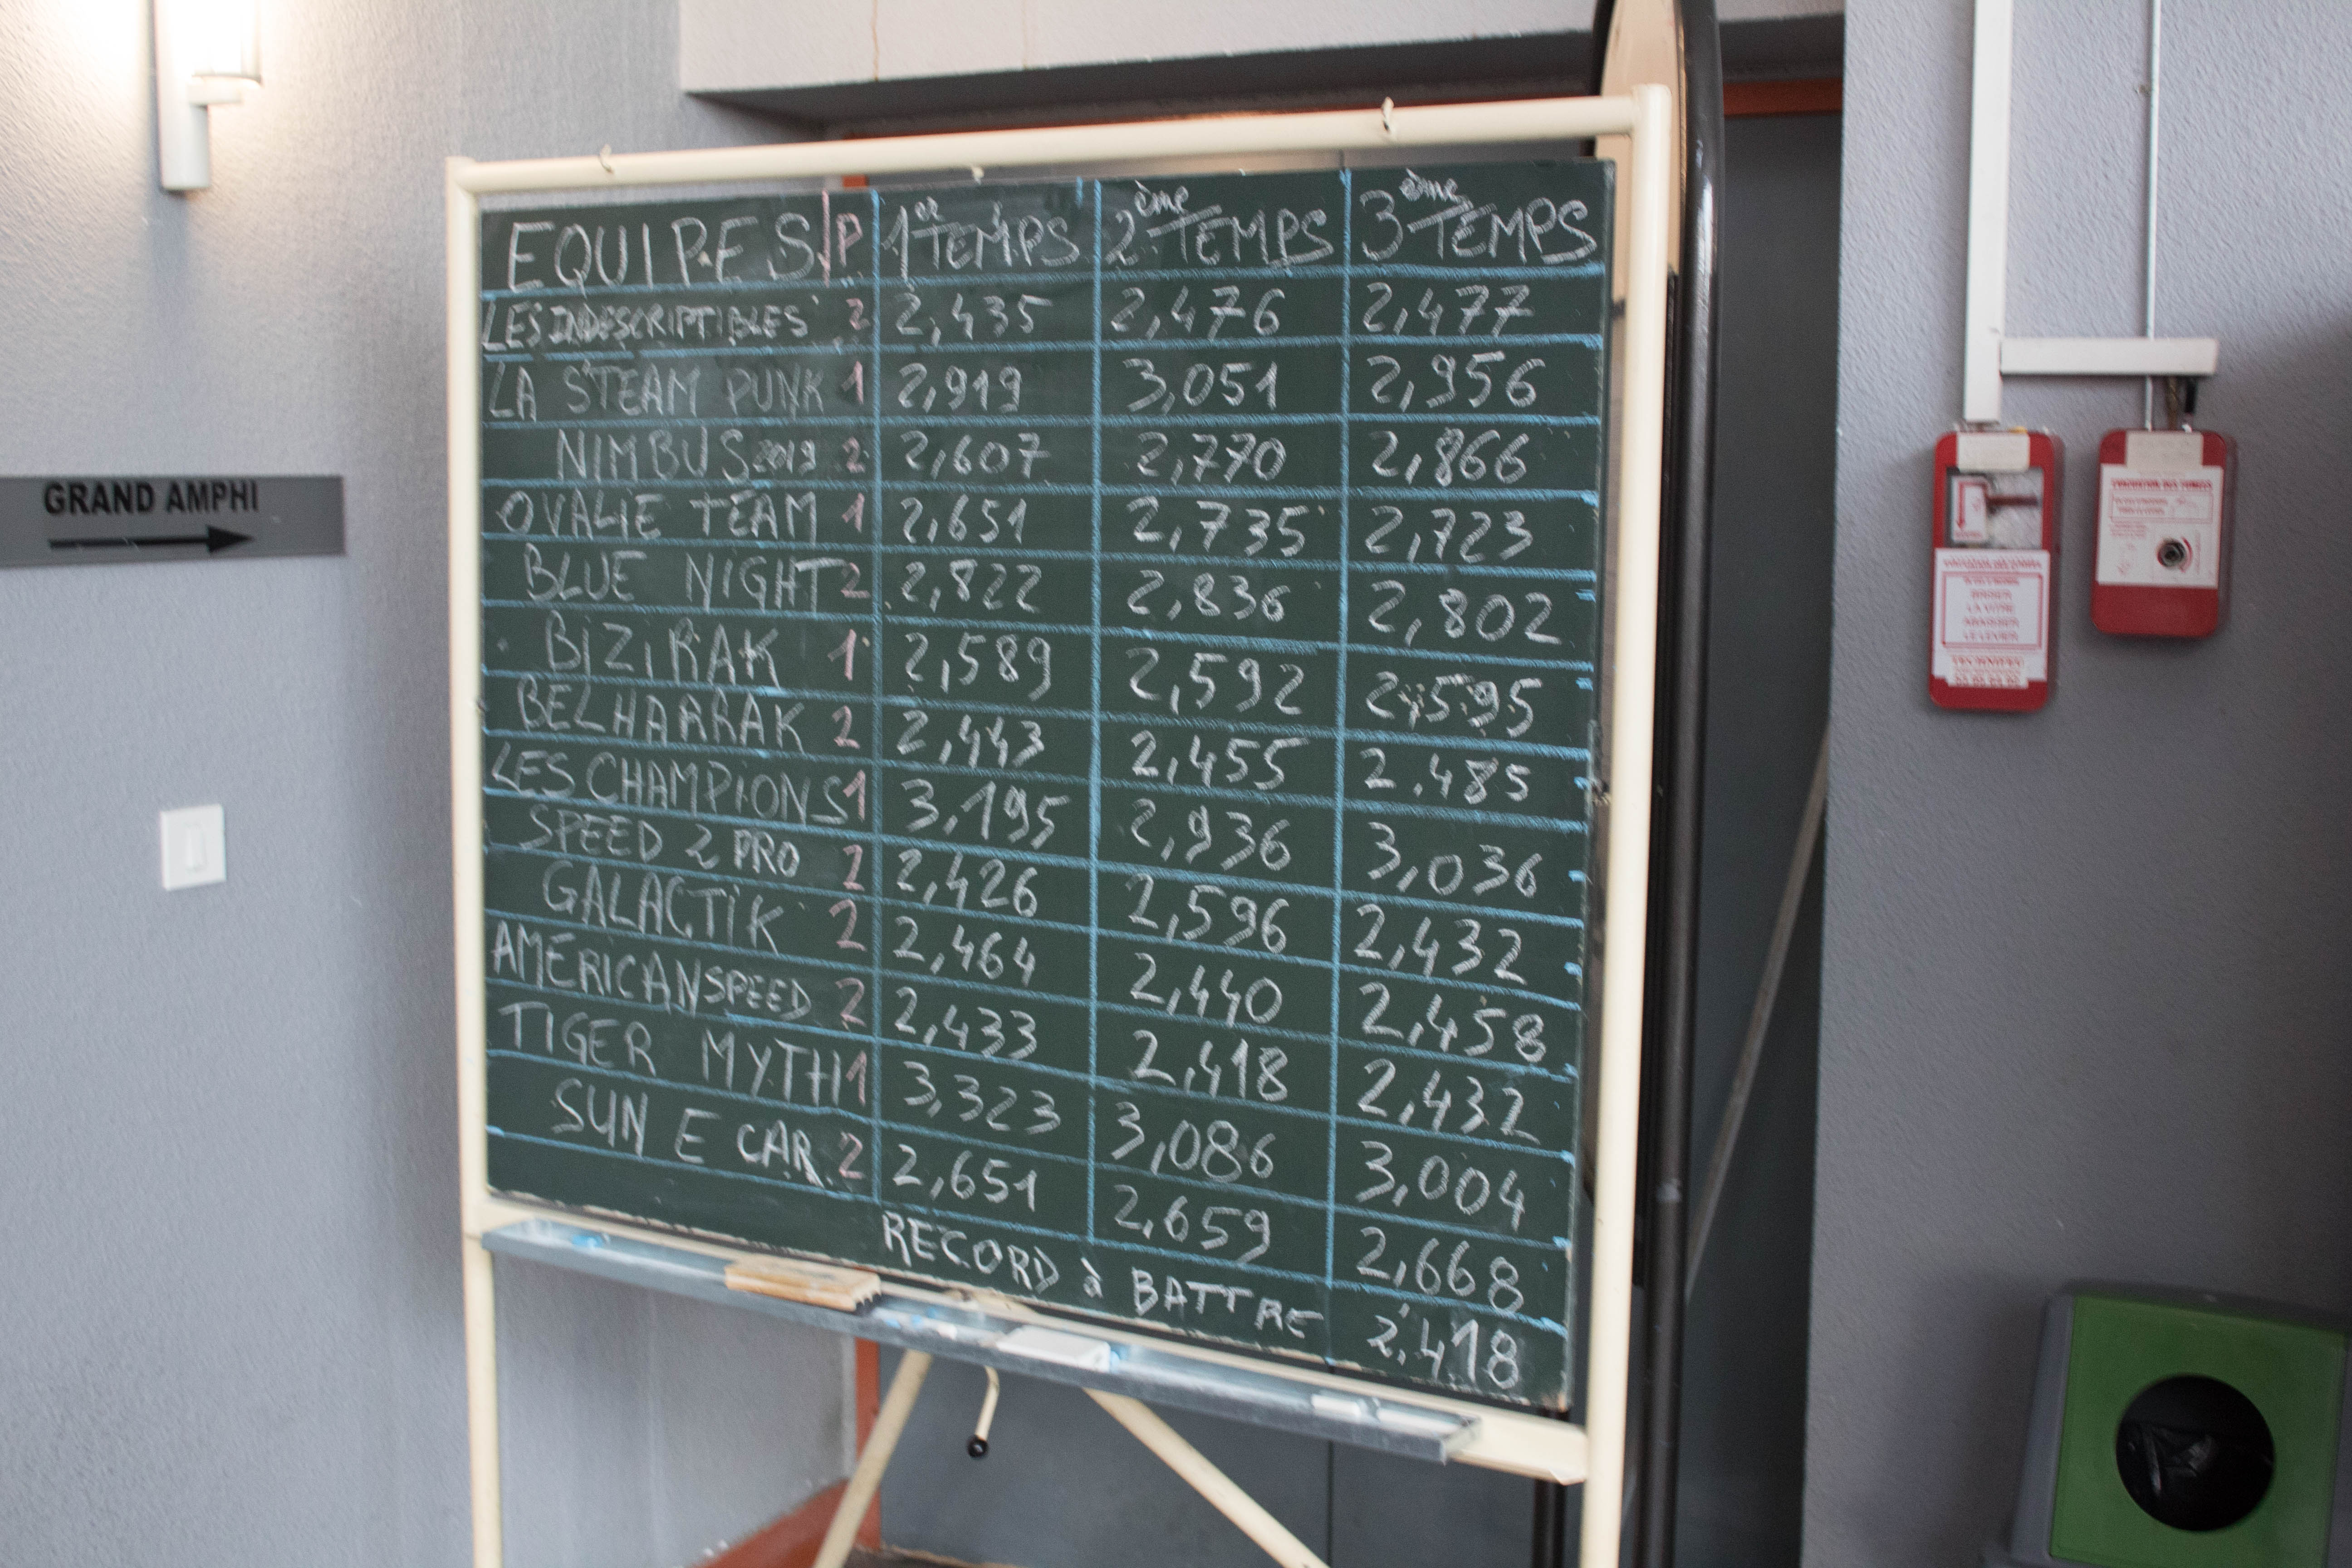 EQUIPES P 1er TEMPS 2ème TEMPS 3ème TEMPS
LES INDESCRIPTIBLES 2 2,435 2,476 2,477
LA STEAM PUNK 1 2,919 3,051 2,956
NIMBUS 2019 2 2,607 2,770 2,866
OVALIE TEAM 1 2,651 2,735 2,723
BLUE NIGHT 2 2,822 2,836 2,802
BiZiRAK 1 2,589 2,592 2,595
BELHARRAK 2 2,443 2,455 2.485
LES CHAMPiONS 1 3,195 2,936 3,036
SPEED 2 PRO 2 2,426 2,596 2,432
GALACTiK 2 2,464 2,440 2,458
AMERICAN SPEED 2 2,433 2,418 2,432
TIGER MYTH 1 3,323 3,086 3,004
SUN E CAR 2 2,651 2,659 2,668
RECORD à BATTRE 2,418
GRAND AMPHI
BRISER
LA VITRE
LE LEVIER